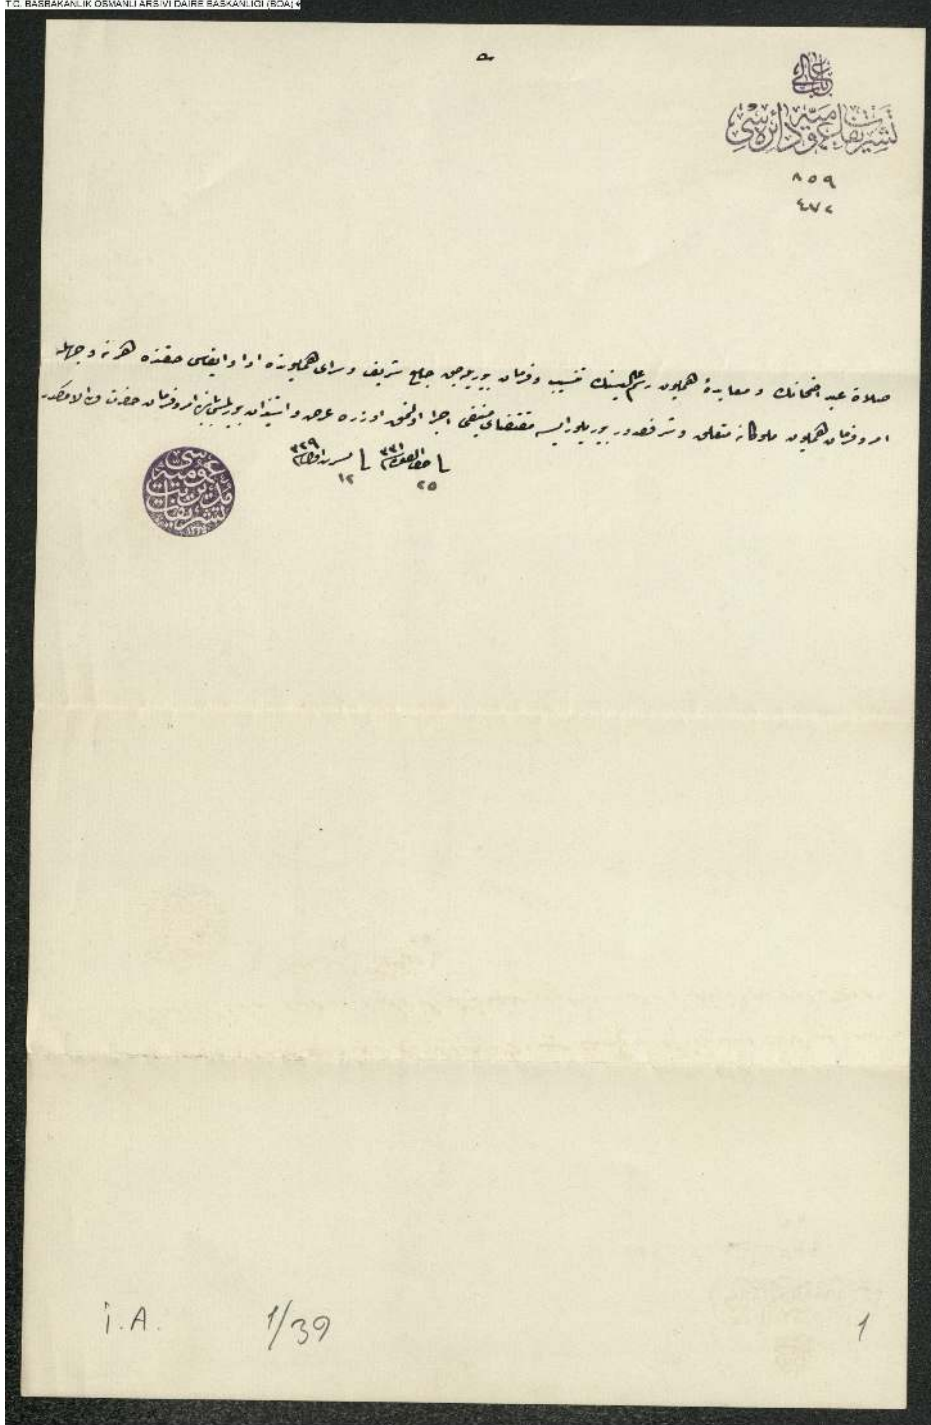 T.C. BAŞBAKANLIK OSMANLI ARŞİVİ DAİRE BAŞKANLIĞI (BOA)
باب عالی
تشریفات عمومیه دائره‌سی
٨٥٩
٤٧٢
صلاة عید اضحانك و معایدهٔ همایون رسم عالیسنك تنسیب و فرمان بیوریله‌جق جامع شریف و سرای همایونده ادا و ایفاسی حقنده هر نه وجهله
امر و فرمان همایون ملوکانه متعلق و شرفصدور بیوریلور ایسه مقتضای منیفی اجرا اولنمق اوزره عرض و استیذان امر و فرمان حضرت من له الامرکدر
٣٣١ ٣٢٩
٢٥ ١٢
تشریفات عمومیه مدیریتی
İ.A. 1/39 1